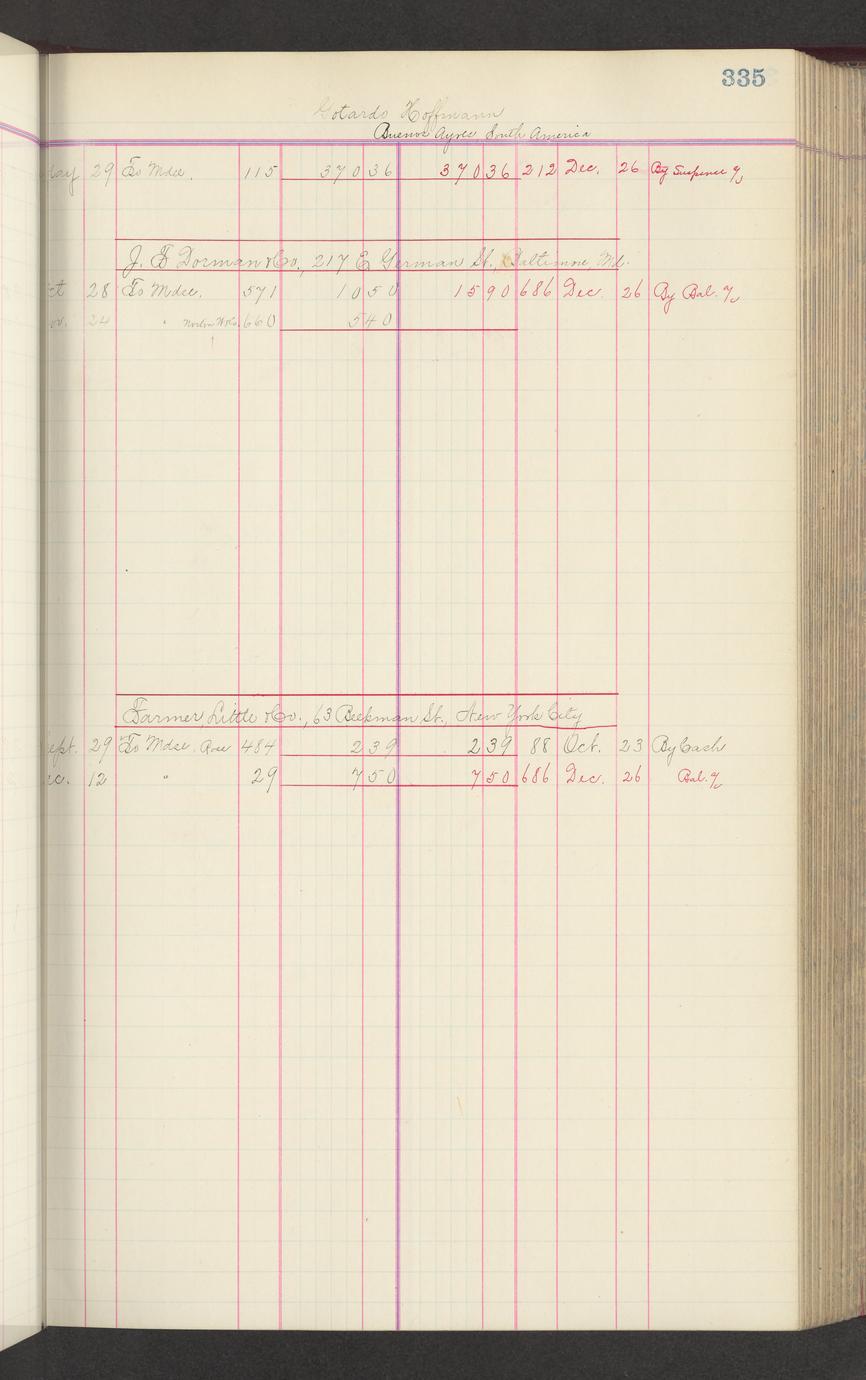 335
Gotardo Hoffmann
Buenos Ayres, South America
May 29 To Mdse. 115 370 36 370 36 212 Dec. 26 By Suspense a/c
J. F. Dorman & Co., 217 E. German St., Baltimore Md.
ct 28 To Mdse. 571 10 50 15 90 686 Dec. 26 By Bal. a/c
ov. 24 " 660 5 40
Farmer Little & Co., 63 Beekman St., New York City
ept. 29 To Mdse. 484 2 39 2 39 88 Oct. 23 By Cash
ec. 12 " 29 7 50 7 50 686 Dec. 26 Bal. a/c